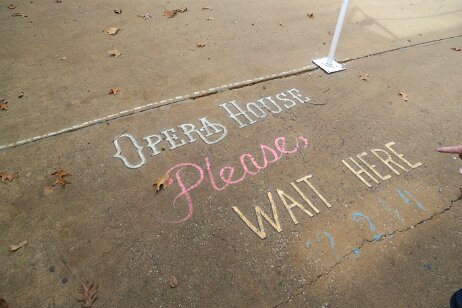 OPERA HOUSE
Please
WAIT HERE